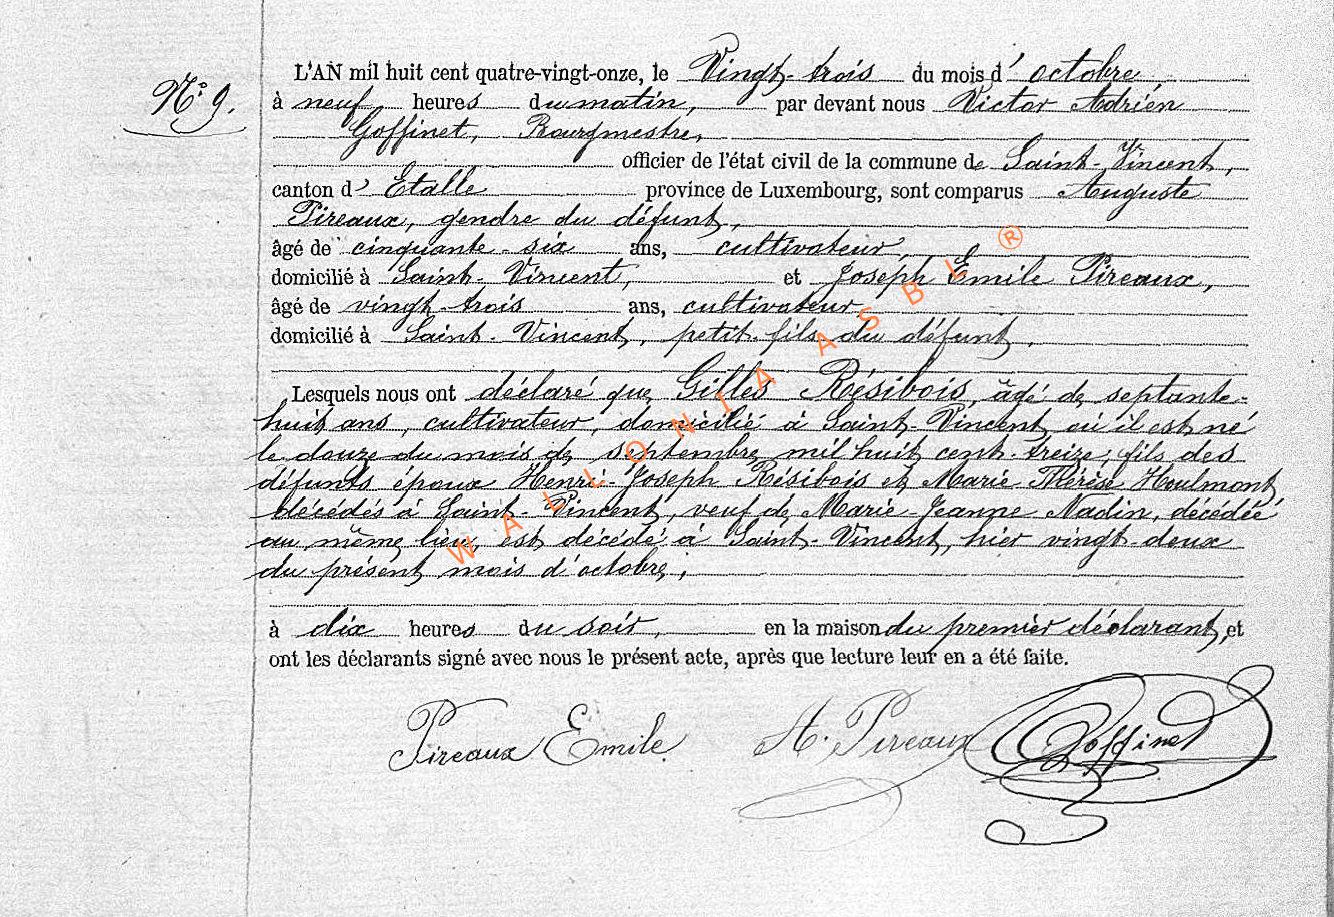 N° 9.
L'AN mil huit cent quatre-vingt-onze, le Vingt-trois du mois d'octobre,
à neuf heures du matin, par devant nous Victor Adrien
Goffinet, Bourgmestre,
officier de l'état civil de la commune de Saint-Vincent,
canton d'Etalle province de Luxembourg, sont comparus Auguste
Pireaux, gendre du défunt,
âgé de cinquante-six ans, cultivateur,
domicilié à Saint-Vincent, et Joseph Emile Pireaux,
âgé de vingt-trois ans, cultivateur,
domicilié à Saint-Vincent, petit-fils du défunt,
Lesquels nous ont déclaré que Gilles Résibois, âgé de septante-
huit ans, cultivateur, domicilié à Saint-Vincent où il est né
le douze du mois de septembre mil huit cent-treize, fils des
défunts époux Henri-Joseph Résibois et Marie Thérèse Houlmont
décédés à Saint-Vincent, veuf de Marie-Jeanne Nadin, décédée
au même lieu, est décédé à Saint-Vincent, hier vingt-deux
du présent mois d'octobre,
à dix heures du soir, en la maison du premier déclarant, et
ont les déclarants signé avec nous le présent acte, après que lecture leur en a été faite.
Pireaux Emile. A. Pireaux Goffinet
WALLONIA ASBL ®